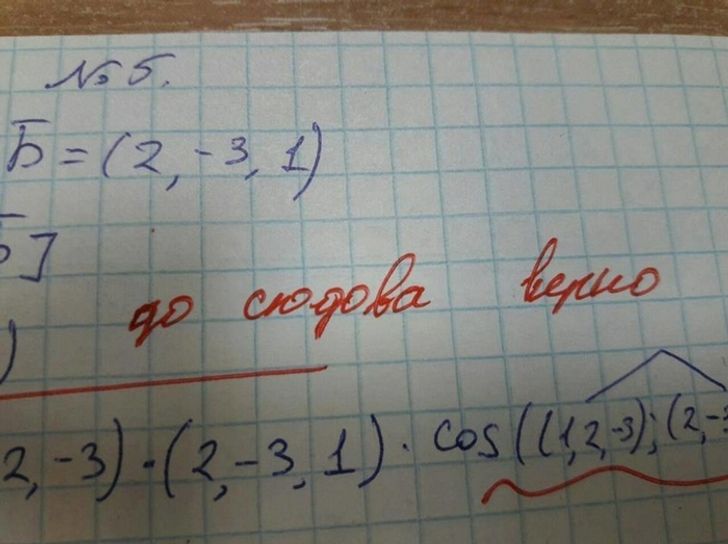 № 5.
Б = (2, -3, 1)
Б]
до сюдова верно
)
2, -3) · (2, -3, 1) · cos((1, 2, -3); (2, -3